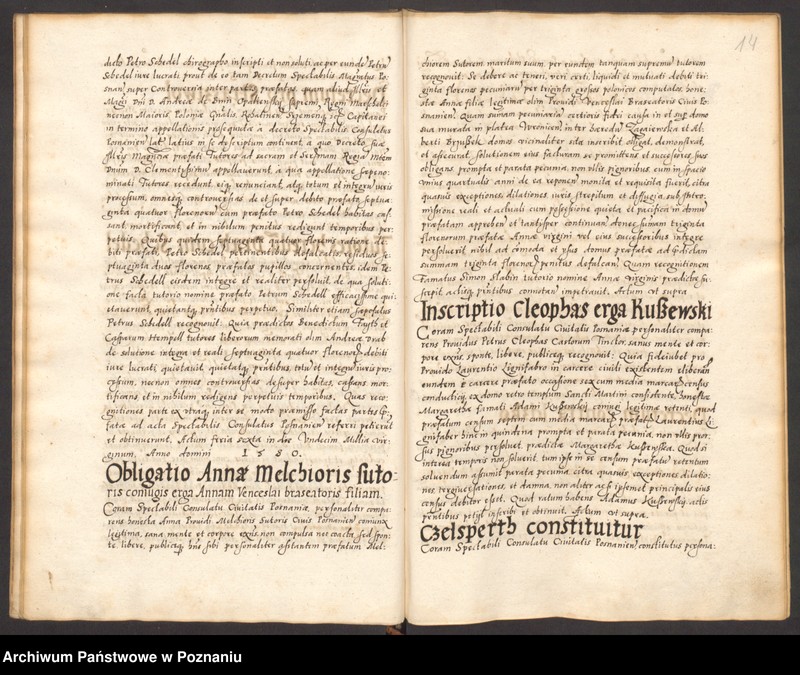 dicto Petro Schedel chirographo inscripti et non soluti, ac per eundē Petrū
Schedel iure lucrati prout de eo tam Decretum Spectabilis Magr̄atus Po:
snan: super Controuersia inter partes præfatas, quam aliud Illr̄is et
Magci Dn̄i D. Andreæ de Opalenskj supremj Regni Marschalci
necnon Maioris Poloniæ Gn̄alis Capitanei
in termino appellationis prosequendæ à decreto Spectabilis Consulatus
Posnanien̄ lat. latius in se descriptum continent, à quo Decreto suæ
præfati Tutores ad sacram et Regiā
Dnum D. Clementissimū appellauerunt, à qua appellatione
minati Tutores recedunt, eiq renunciant, atq totum et integrū iuris
processum, omnesq controuersias de et super debito præfato septua:
ginta quatuor florenorum cum præfato Petro Schedel habitas cas:
sant, mortificant, et in nihilum penitus redigunt temporibus per:
petuis. Quibus quidem septuaginta quatuor florenis ratione de:
biti præfati, Petro Schedel pertinentibus residuos se:
ptuaginta duos florenos præfatos pupillos concernentes, idem Pe:
trus Schedell eisdem integre et realiter persoluit, de qua soluti:
one facta tutorio nomine præfato Petrum Schedell efficacissime qui:
etauerunt, quietantq pn̄tibus perpetuo. Similiter etiam
Petrus Schedell recognouit: Quia prædictos Benedictum et
Casparum tutores liberorum memorati olim Andreæ
de solutione integra et reali septuaginta quatuor florenoȝ debiti
iure lucrati, quietauit, quietatq pn̄tibus, totū et integrū iuris pro:
cessum, necnon omnes controuersias desuper habitas, cassans, mor:
tificans, et in nihilum redigens perpetuis temporibus. Quas reco:
gnitiones parte ex vtraq inter se modo præmisso factas partes
fatæ ad acta Spectabilis Consulatus Posnanien̄ referri petierūt
et obtinuerunt. Actum feria sexta in die Vndecim Millia Vir:
ginum. Anno domini 1580.
Obligatio Annæ Melchioris suto:
ris coniugis erga Annam Venceslai braseatoris filiam.
Coram Spectabili Consulatu Ciuitatis Posnaniæ, personaliter compa:
rens honesta Anna Prouidi Melchioris Sutoris Ciuis Posnanien̄ coniunx
legitima, sana mente et corpore exn̄s, non compulsa nec coacta, sed spon:
te, libere, publiceq, hn̄s sibi personaliter assistentem præfatum Mel:
14
chiorem Sutorem maritum suum, per eundem tanquam supremū tutorem
recognouit: Se debere ac teneri, veri certi, liquidi et mutuati debiti tri:
ginta florenos pecuniarū per triginta grossos polonicos computatos, hone:
stæ Annæ filiæ legitimæ olim Prouidi Venceslai Braseatoris Ciuis Po:
snanien̄. Quam summam pecuniariā certioris fidei causa in et sup domo
sua murata in platea Wronien̄, inter hæredū et Al:
berti domos vicinaliter sita inscribit, obligat, demonstrat,
et assecurat. Solutionem eius facturam se promittens et successores suos
obligans, prompta et parata pecunia, non vllis pignoribus, cum in spacio
vnius quartualis anni de ea reponen̄ monita et requisita fuerit, citra
quasuis exceptiones, dilationes, iuris strepitum et diffugia,
missione reali et actuali cum possessione quieta et pacifica in domū
præfatam apprehen̄ et tantisper continuan̄, donec summam triginta
florenorum præfatæ Annæ virgini vel eius successoribus integre
persoluerit, nihil ad cōmoda et vsus domus præfatæ ad prædictam
summam triginta florenoȝ penitus defalcan̄. Quam recognitionem
Famatus Simon Slabin tutorio nomine Annæ virginis prædictæ su:
scepit, actisq pn̄tibus connotan̄ impetrauit. Actum vt supra
Inscriptio Cleophas erga Kußewski
Coram Spectabili Consulatu Ciuitatis Posnaniæ personaliter compa:
rens Prouidus Petrus Cleophas Carborum Tinctor, sanus mente et cor:
pore exn̄s, sponte, libere, publiceq recognouit: Quia fideiubet pro
Prouido Laurentio Lignifabro in carcere ciuili existentem eliberan̄
eundem è carcere præfato occasione sex cum media marcaȝ census
conductitij, ex domo retro templum Sancti Martini consistente, honestæ
Margarethæ famati Adami Kußewskj coniugi legitimæ retenti, quod
præfatum censum septem cum media marcaȝ præfatȝ Laurentius Li:
gnifaber hinc in quindena prompta et parata pecunia, non vllis pro:
sus pignoribus persoluet, prædictæ Margarethæ Kußewska. Quod si
interea temporis non soluerit, tum ipse in se censum præfatū retentum
soluendum assumit parata pecunia, citra quasuis exceptiones, dilatio:
nes, tergiuersationes, et damna, non aliter ac si ipsemet principalis eius
census debitor esset. Quod ratum habens Adamus Kußewskj, actis
pn̄tibus petijt inscribi et obtinuit. Actum vt supra.
Czelsperth constituitur
Coram Spectabili Consulatu Ciuitatis Posnanien̄ constitutus persona:
Archiwum Państwowe w Poznaniu